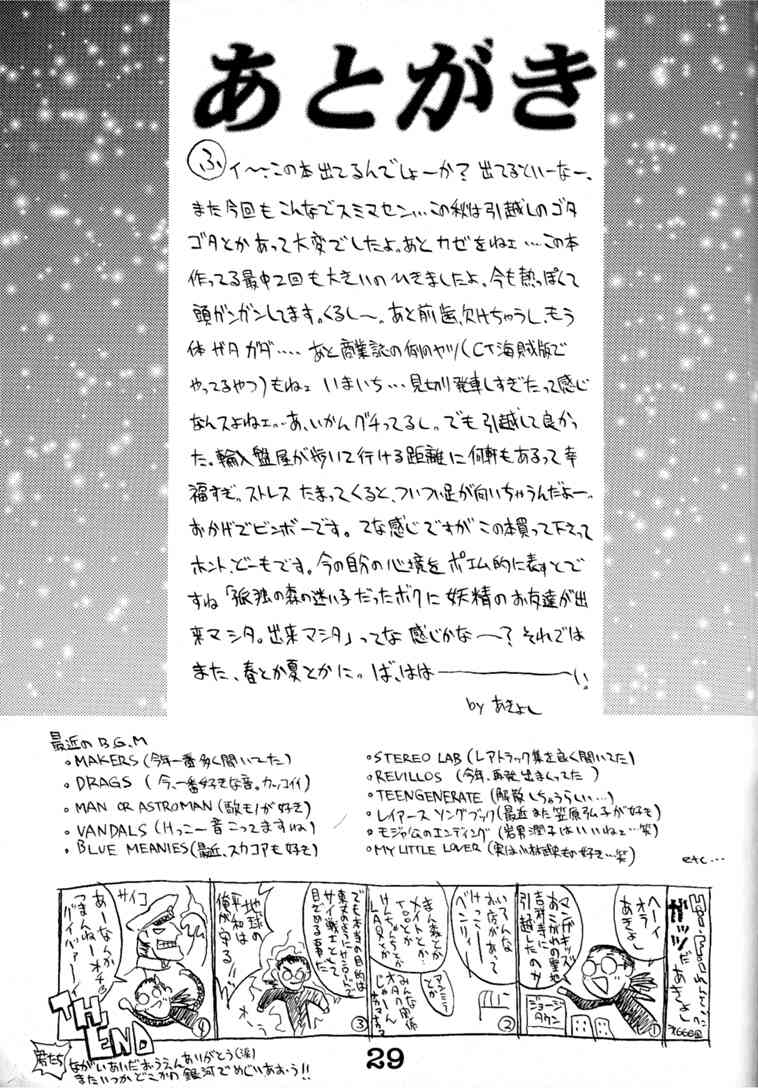 あとがき
ふィ〜、この本出てるんでしょーか?出てるといーなー、
また今回もこんなでスミマセン…この秋は引越しのゴタ
ゴタとかあって大変でしたよ。あとカゼをねェ…この本
作ってる最中2回も大きいのひきましたよ、今も熱っぽくて
頭ガンガンしてます。くるし〜。あと前歯、欠けちゃうし、もう
体ガタガタ‥‥あと商業誌の例のヤツ(CT海賊版で
やってるやつ)もねェいまいち…見切り発車しすぎたって感じ
なんスよねェ…あ、いかんグチってるし。でも引越して良かっ
た。輸入盤屋が歩いて行ける距離に何軒もあるって幸
福すぎ。ストレスたまってくると、ついつい足が向いちゃうんだよー。
おかげでビンボーです。てな感じですがこの本買って下さって
ホントどーもです。今の自分の心境をポエム的に表すとで
すね「孤独の森の迷い子だったボクに妖精のお友達が出
来マシタ。出来マシタ」ってな感じかな〜?それでは
また、春とか夏とかに。ば、はは――――い。
by あきよし
最近のB.G.M
•MAKERS(今年一番多く聞いてた)
•DRAGS(今、一番好きな音。カッコイイ)
•MAN OR ASTROMAN(敵もノが好き)
•VANDALS(けっこー音こってますね)
•BLUE MEANIES(最近、スカコアも好き)
•STEREO LAB(レアトラック集を良く聞いてた)
•REVILLOS(今年、再発出まくってた)
•TEENGENERATE(解散しちゃうらしい…)
•レイアース ソングブック(最近また笠原弘子が好き)
•モジャ公のエンディング(岩男潤子はいいねェ…笑)
•MY LITTLE LOVER(実は小林武史も好き…笑)
etc…
ガッツだあきよし
ヘーイ
オラ
あきよし
マンガキッズ
あこがれの聖地
吉祥寺に
引越したのか
ジョージ
タウン
①
いろんな
お店があって
けっこー
ベンリィ
②
まんだとか
メイトとか
とか
みんな
オタク関係
じゃーん
③
でも本当の目的は
東京のきさにサミしくて
サイ戦士として
目ざめる事だ
地球の
平和は
俺が守る!!
サイコ
あーなんか
つまんねーオチ
グイバァー!
④
TH END
君たち
ながいあいだおうえんありがとう(涙)
またいつかどこかの銀河でめぐりあおう!!
29